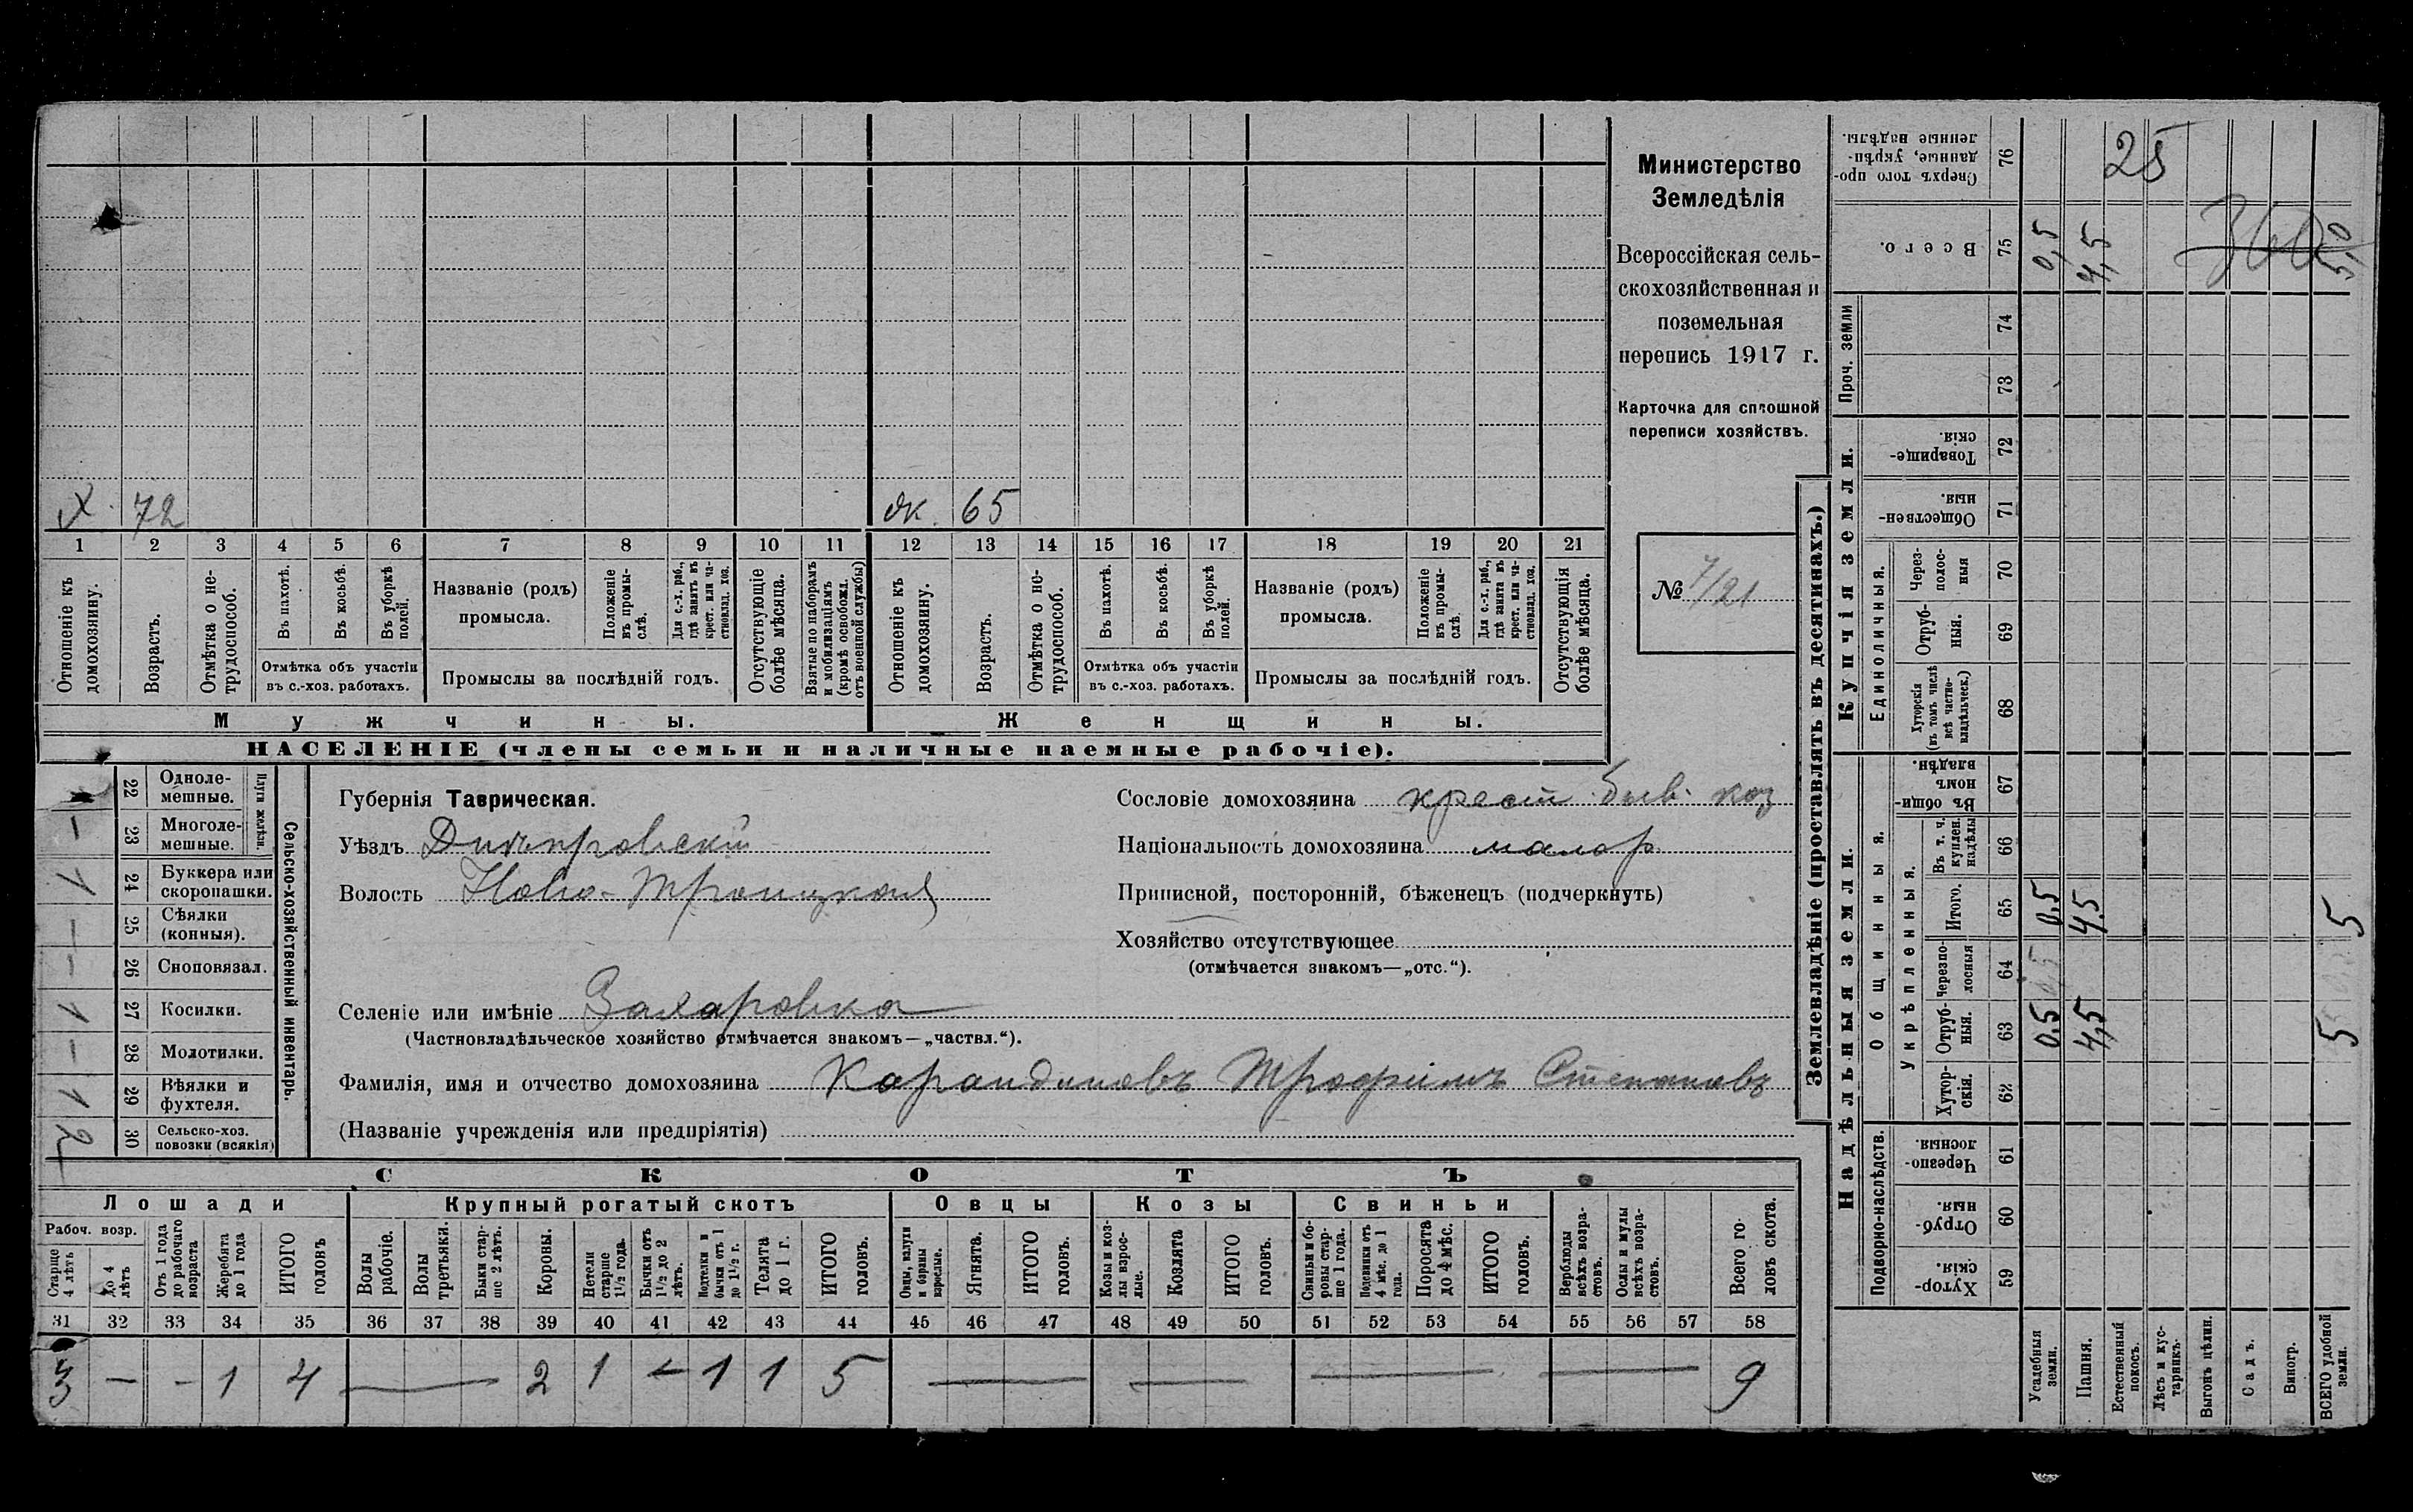 Министерство
Земледѣлія
Всероссійская сель-
скохозяйственная и
поземельная
перепись 1917 г.
Карточка для сплошной
переписи хозяйствъ.
№ 7/21
Х. 72
ж. 65
1 2 3 4 5 6 7 8 9 10 11 12 13 14 15 16 17 18 19 20 21
Отношеніе къ домохозяину.
Возрастъ.
Отмѣтка о не-трудоспособ.
Въ пахотѣ.
Въ косьбѣ.
Въ уборкѣ полей.
Отмѣтка объ участіи
въ с.-хоз. работахъ.
Названіе (родъ)
промысла.
Положеніе въ промы-слѣ.
Для с.-х. раб., гдѣ занятъ въ крест. или ча-стновлад. хоз.
Промыслы за послѣдній годъ.
Отсутствующіе болѣе мѣсяца.
Взятые по наборамъ и мобилизаціямъ (кромѣ освобожд. отъ военной службы)
Отношеніе къ домохозяину.
Возрастъ.
Отмѣтка о не-трудоспособ.
Въ пахотѣ.
Въ косьбѣ.
Въ уборкѣ полей.
Отмѣтка объ участіи
въ с.-хоз. работахъ.
Названіе (родъ)
промысла.
Положеніе въ промы-слѣ.
Для с.-х. раб., гдѣ занята въ крест. или ча-стновлад. хоз.
Промыслы за послѣдній годъ.
Отсутствующія болѣе мѣсяца.
Мужчины.
Женщины.
НАСЕЛЕНІЕ (члены семьи и наличные наемные рабочіе).
Сельско-хозяйственный инвентарь.
Плуги желѣзн.
22 Одноле-мешные.
— 23 Многоле-мешные.
1 24 Буккера или скоропашки.
— 25 Сѣялки (конныя).
— 26 Сноповязал.
1 27 Косилки.
— 28 Молотилки.
1 29 Вѣялки и фухтеля.
2 30 Сельско-хоз. повозки (всякія)
Губернія Таврическая.
Уѣздъ Днѣпровскій
Волость Ново-Троицкая
Селеніе или имѣніе Захаровка
(Частновладѣльческое хозяйство отмѣчается знакомъ—„частвл.“).
Фамилія, имя и отчество домохозяина Карандиновъ Трофимъ Степановъ
(Названіе учрежденія или предпріятія)
Сословіе домохозяина крест. быв. каз
Національность домохозяина малор.
Приписной, посторонній, бѣженецъ (подчеркнуть)
Хозяйство отсутствующее
(отмѣчается знакомъ—„отс.“).
СКОТЪ
Лошади
Крупный рогатый скотъ
Овцы
Козы
Свиньи
Рабоч. возр.
Старше 4 лѣтъ
до 4 лѣтъ
Отъ 1 года до рабочаго возраста
Жеребята до 1 года
ИТОГО головъ
Волы рабочіе.
Волы третьяки.
Быки стар-ше 2 лѣтъ.
Коровы.
Нетели старше 1½ года.
Бычки отъ 1½ до 2 лѣтъ.
Подтелки и бычки отъ 1 до 1½ г.
Телята до 1 г.
ИТОГО головъ.
Овцы, валухи и бараны взрослые.
Ягнята.
ИТОГО головъ.
Козы и коз-лы взрос-лые.
Козлята
ИТОГО головъ.
Свиньи и бо-ровы стар-ше 1 года.
Подсвинки отъ 4 мѣс. до 1 года.
Поросята до 4 мѣс.
ИТОГО головъ.
Верблюды всѣхъ возра-стовъ.
Ослы и мулы всѣхъ возра-стовъ.
Всего го-ловъ скота.
31 32 33 34 35 36 37 38 39 40 41 42 43 44 45 46 47 48 49 50 51 52 53 54 55 56 57 58
3 — - 1 4 — 2 1 - 1 1 5 — — — — 9
Землевладѣніе (проставлять въ десятинахъ.)
Надѣльныя земли.
Купчія земли.
Проч. земли
Подворно-наслѣдств.
Общинныя.
Укрѣпленныя.
Единоличныя.
59 Хутор-скія.
60 Отруб-ныя.
61 Черезпо-лосныя
62 Хутор-скія.
63 Отруб-ныя. 0.5 4,5 5
64 Черезпо-лосныя
65 Итого. 0.5 4.5 5
66 Въ т. ч. куплен. надѣлы
67 Въ общи-номъ владѣн.
68 Хуторскія (въ томъ числѣ всѣ частно-владѣльческ.)
69 Отруб-ныя.
70 Через-полос-ныя
71 Обществен-ныя.
72 Товарище-скія.
73
74
75 Всего. 0,5 4,5 5,0
76 Сверхъ того про-данные, укрѣп-ленные надѣлы. 25
Усадебныя земли.
Пашня.
Естественный покосъ.
Лѣсъ и кус-тарникъ.
Выгонъ цѣлин.
Садъ.
Виногр.
ВСЕГО удобной земли.